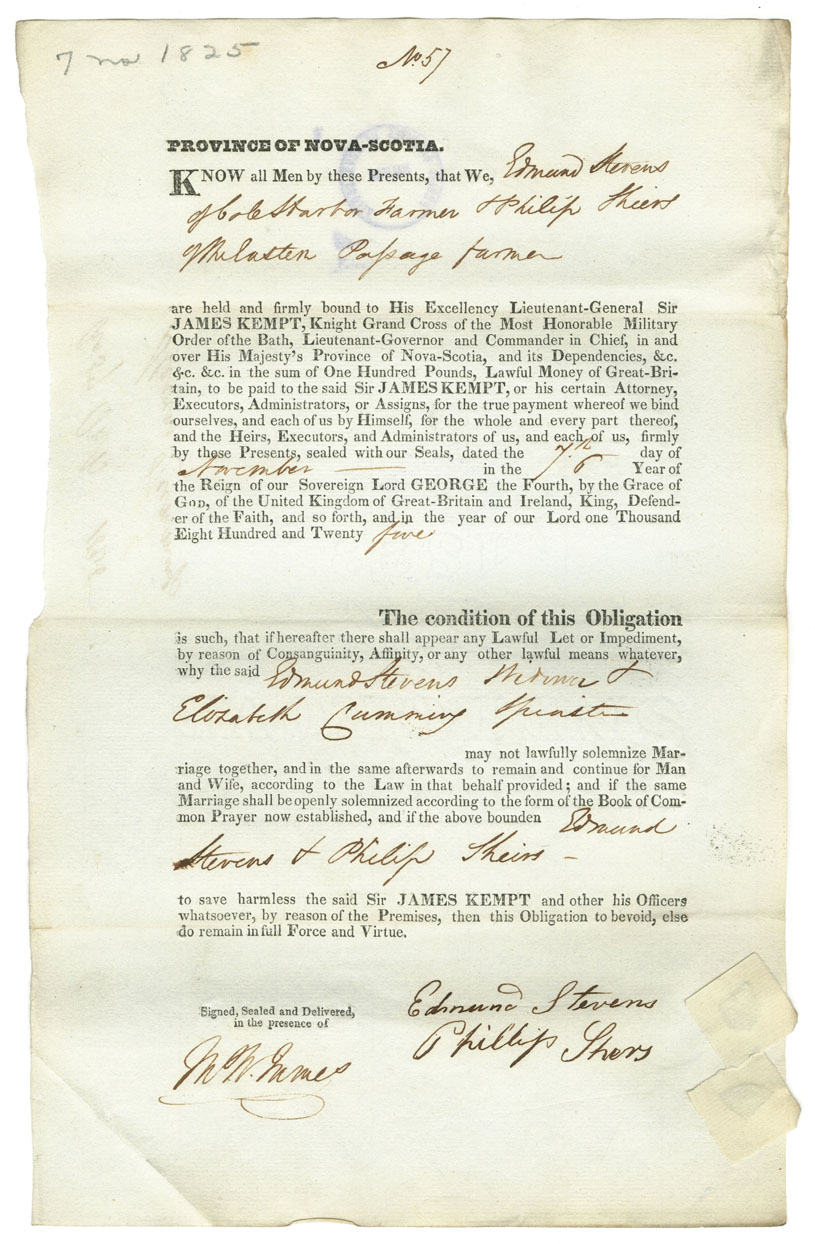 7 no 1825
No 57
PROVINCE OF NOVA-SCOTIA.
KNOW all Men by these Presents, that We, Edmund Stevens
of Cole Harbor Farmer & Philip Sheers
of the Eastern Passage farmer
are held and firmly bound to His Excellency Lieutenant-General Sir
JAMES KEMPT, Knight Grand Cross of the Most Honorable Military
Order of the Bath, Lieutenant-Governor and Commander in Chief, in and
over His Majesty's Province of Nova-Scotia, and its Dependencies, &c.
&c. &c. in the sum of One Hundred Pounds, Lawful Money of Great-Bri-
tain, to be paid to the said Sir JAMES KEMPT, or his certain Attorney,
Executors, Administrators, or Assigns, for the true payment whereof we bind
ourselves, and each of us by Himself, for the whole and every part thereof,
and the Heirs, Executors, and Administrators of us, and each of us, firmly
by these Presents, sealed with our Seals, dated the 7th day of
November — in the 6 Year of
the Reign of our Sovereign Lord GEORGE the Fourth, by the Grace of
GOD, of the United Kingdom of Great-Britain and Ireland, King, Defend-
er of the Faith, and so forth, and in the year of our Lord one Thousand
Eight Hundred and Twenty five
The condition of this Obligation
is such, that if hereafter there shall appear any Lawful Let or Impediment,
by reason of Consanguinity, Affinity, or any other lawful means whatever,
why the said Edmund Stevens Widower &
Elizabeth Cumming Spinster
may not lawfully solemnize Mar-
riage together, and in the same afterwards to remain and continue for Man
and Wife, according to the Law in that behalf provided; and if the same
Marriage shall be openly solemnized according to the form of the Book of Com-
mon Prayer now established, and if the above bounden Edmund
Stevens & Philip Sheirs —
to save harmless the said Sir JAMES KEMPT and other his Officers
whatsoever, by reason of the Premises, then this Obligation to be void, else
do remain in full Force and Virtue.
Signed, Sealed and Delivered,
in the presence of
Edmund Stevens
Phillip Shers
James